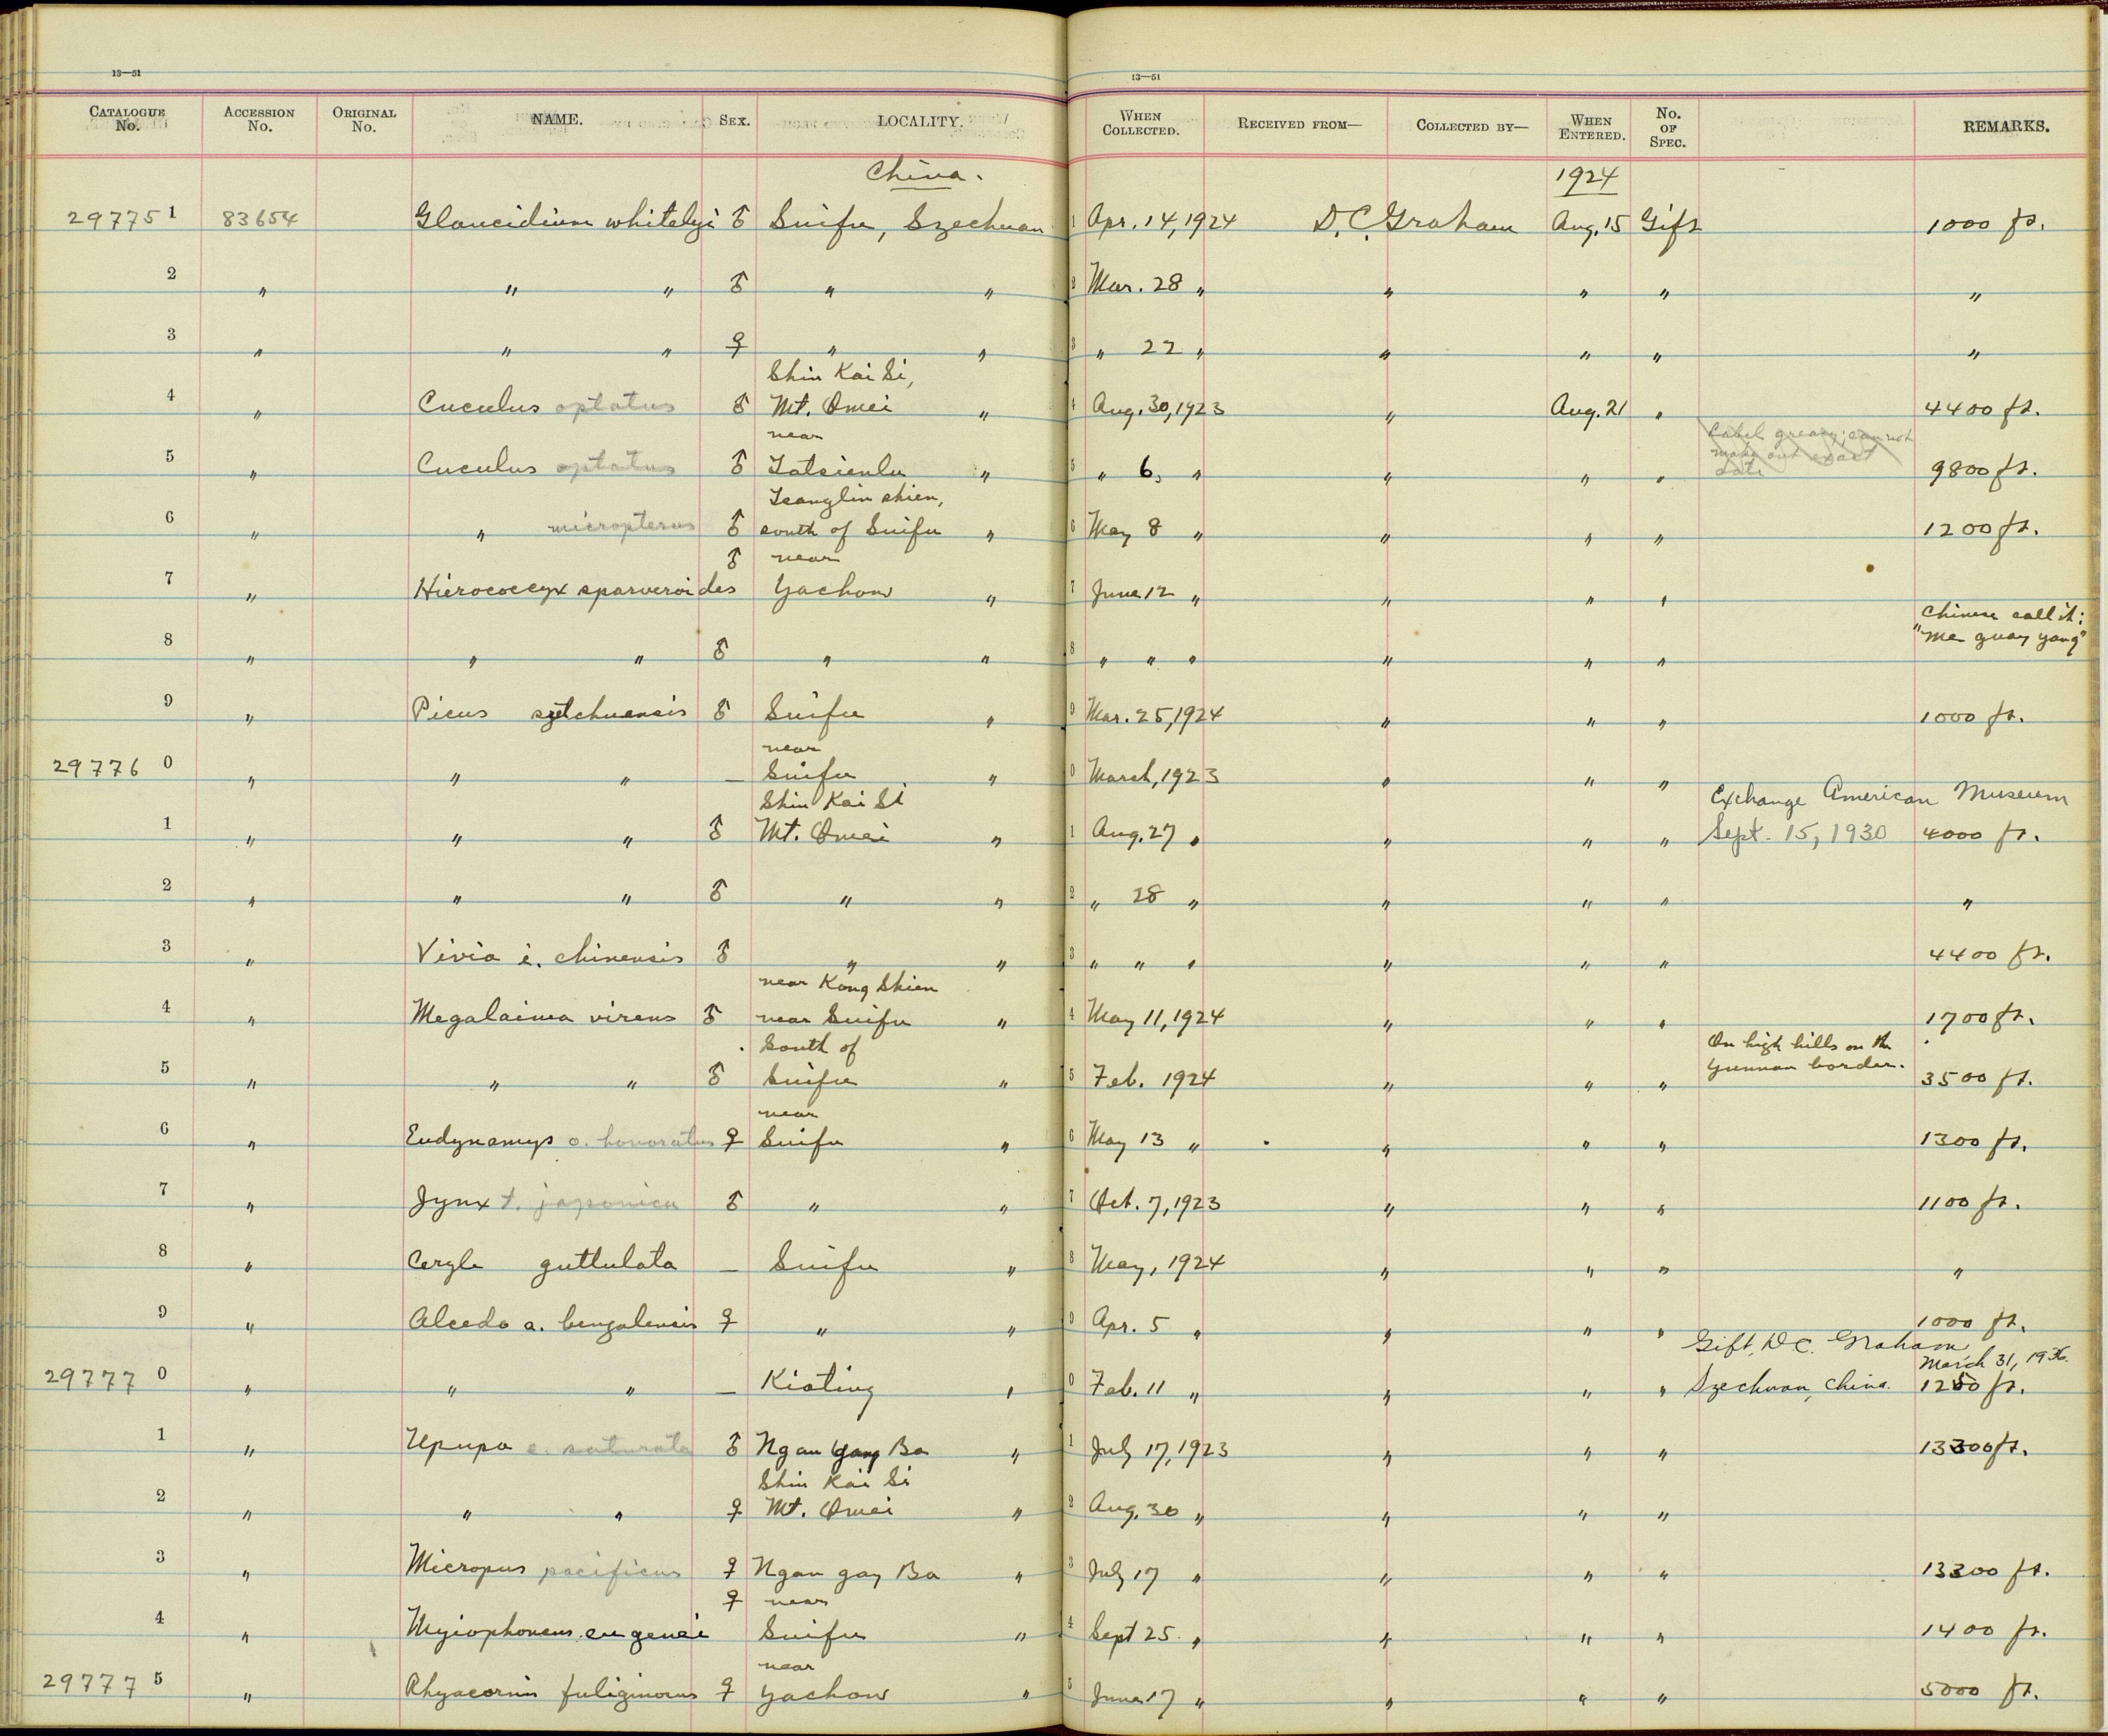 13—51 13—51
CATALOGUE No. ACCESSION No. ORIGINAL No. NAME. SEX. LOCALITY. WHEN COLLECTED. RECEIVED FROM— COLLECTED BY— WHEN ENTERED. No. OF SPEC. REMARKS.
China. 1924
29775 1 83654 Glaucidium whitelyi ♂ Suifu, Szechuan 1 Apr. 14, 1924 D.C. Graham Aug. 15 Gift 1000 ft.
2 " " " ♂ " " 2 Mar. 28 " " " " "
3 " " " ♀ " " 3 " 22 " " " " "
Shin Kai Si,
4 " Cuculus optatus ♂ Mt. Omei " 4 Aug. 30, 1923 " Aug. 21 " 4400 ft.
near Label greasy; cannot make out exact date
5 " Cuculus optatus ♂ Tatsienlu " 5 " 6, " " " " 9800 ft.
Tsanglin shien,
6 " " micropterus ♂ south of Suifu " 6 May 8 " " " " 1200 ft.
♂ near
7 " Hierococcyx sparveroides Yachow " 7 June 12 " " " "
Chinese call it:
"Me quay yang"
8 " " " ♂ " " 8 " " " " " "
9 " Picus szetchuensis ♂ Suifu " 9 Mar. 25, 1924 " " " 1000 ft.
near
29776 0 " " " — Suifu " 0 March, 1923 " " "
Shin Kai Si Exchange American Museum
1 " " " ♂ Mt. Omei " 1 Aug. 27 " " " " Sept. 15, 1930 4000 ft.
2 " " " ♂ " " 2 " 28 " " " " "
3 " Vivia i. chinensis ♂ " " 3 " " " " " " 4400 ft.
near Kong Shien
4 " Megalaima virens ♂ near Suifu " 4 May 11, 1924 " " " 1700 ft.
South of On high hills on the
5 " " " ♂ Suifu " 5 Feb. 1924 " " " Yunnan border. 3500 ft.
near
6 " Eudynamys o. honoratus ♀ Suifu " 6 May 13 " " " " 1300 ft.
7 " Jynx t. japonica ♂ " " 7 Oct. 7, 1923 " " " 1100 ft.
8 " Ceryle guttulata — Suifu " 8 May, 1924 " " " "
9 " Alcedo a. bengalensis ♀ " " 9 Apr. 5 " " " " 1000 ft.
Gift, D.C. Graham March 31, 1936.
29777 0 " " " — Kiating " 0 Feb. 11 " " " " Szechwan, China. 1250 ft.
1 " Upupa e. saturata ♂ Ngan Yang Ba " 1 July 17, 1923 " " " 13300 ft.
Shin Kai Si
2 " " " ♀ Mt. Omei " 2 Aug. 30 " " " "
3 " Micropus pacificus ♀ Ngan gay Ba " 3 July 17 " " " " 13300 ft.
♀ near
4 " Myiophoneus eugenei Suifu " 4 Sept 25 " " " " 1400 ft.
near
29777 5 " Rhyacornis fuliginosus ♀ Yachow " 5 June 17 " " " " 5000 ft.